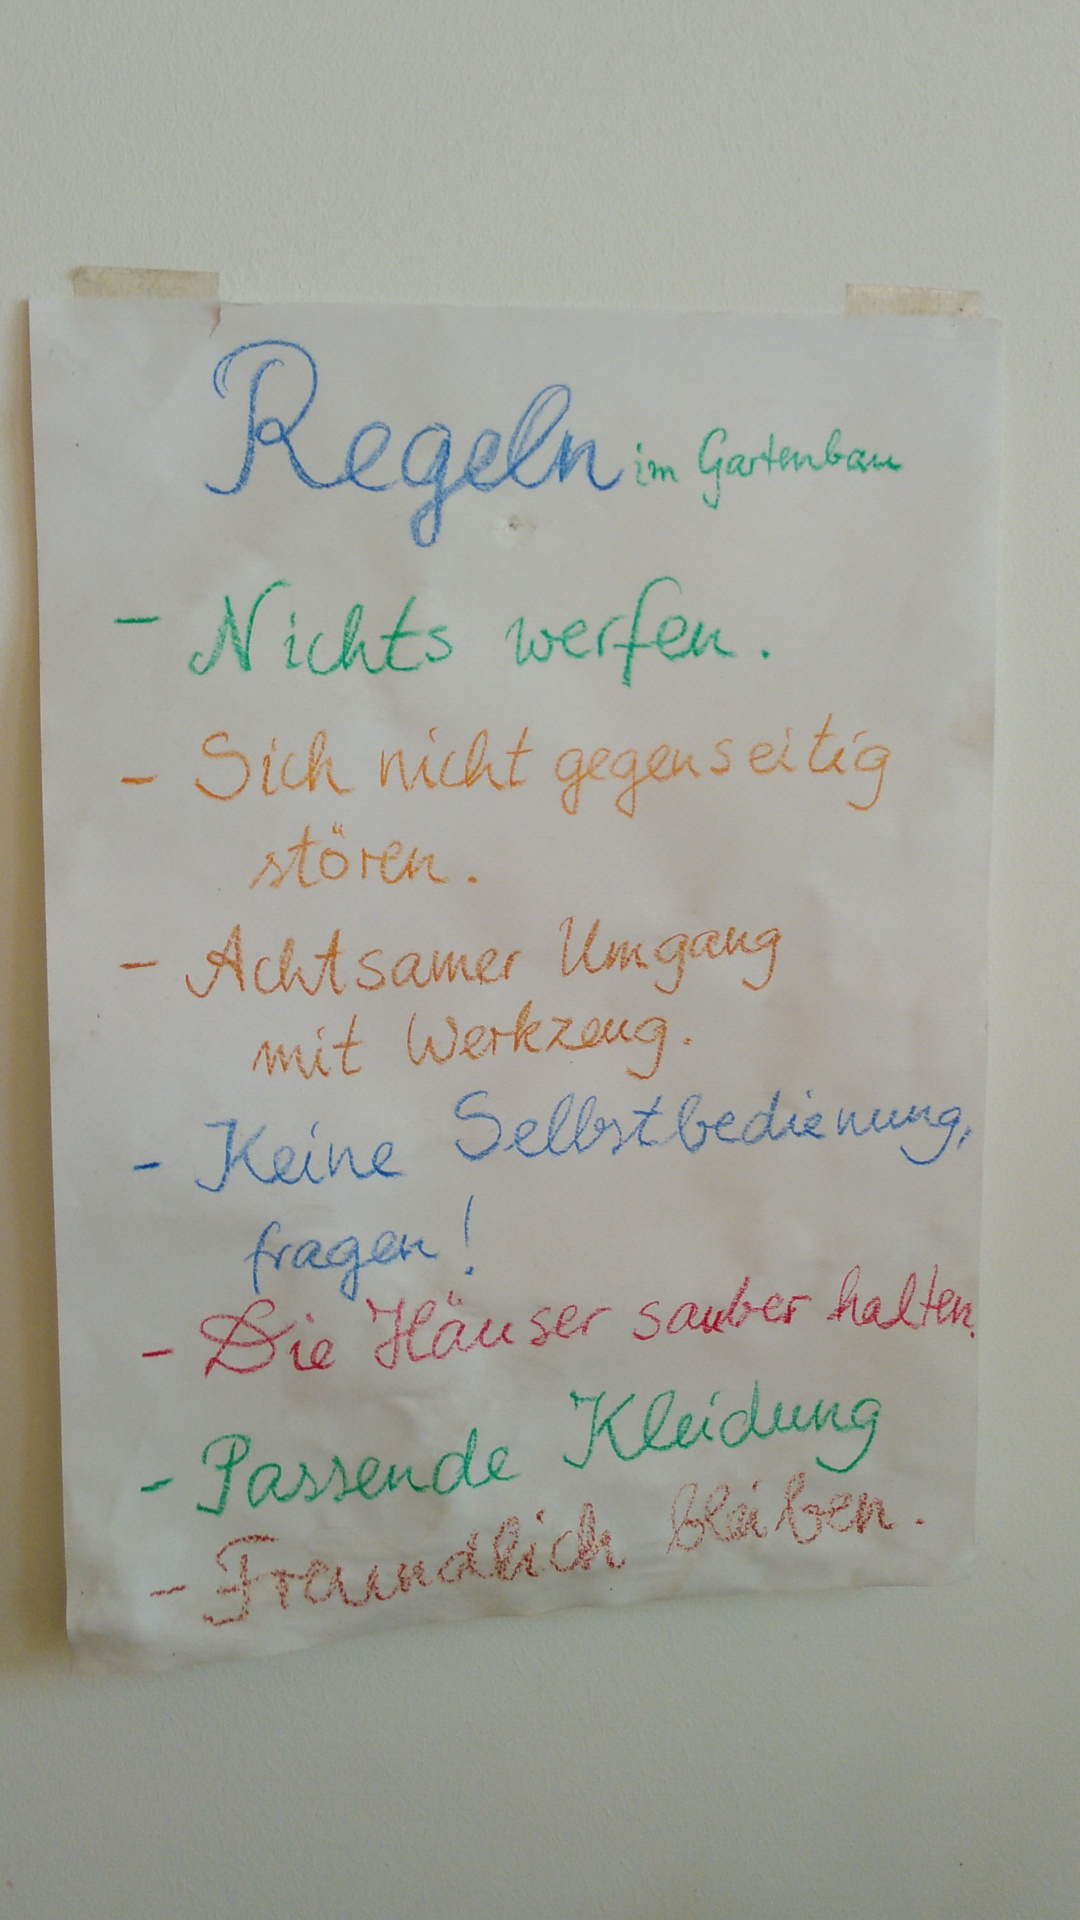 Regeln im Gartenbau
- Nichts werfen.
- Sich nicht gegenseitig
stören.
- Achtsamer Umgang
mit Werkzeug.
- Keine Selbstbedienung,
fragen!
- Die Häuser sauber halten.
- Passende Kleidung
- Freundlich bleiben.